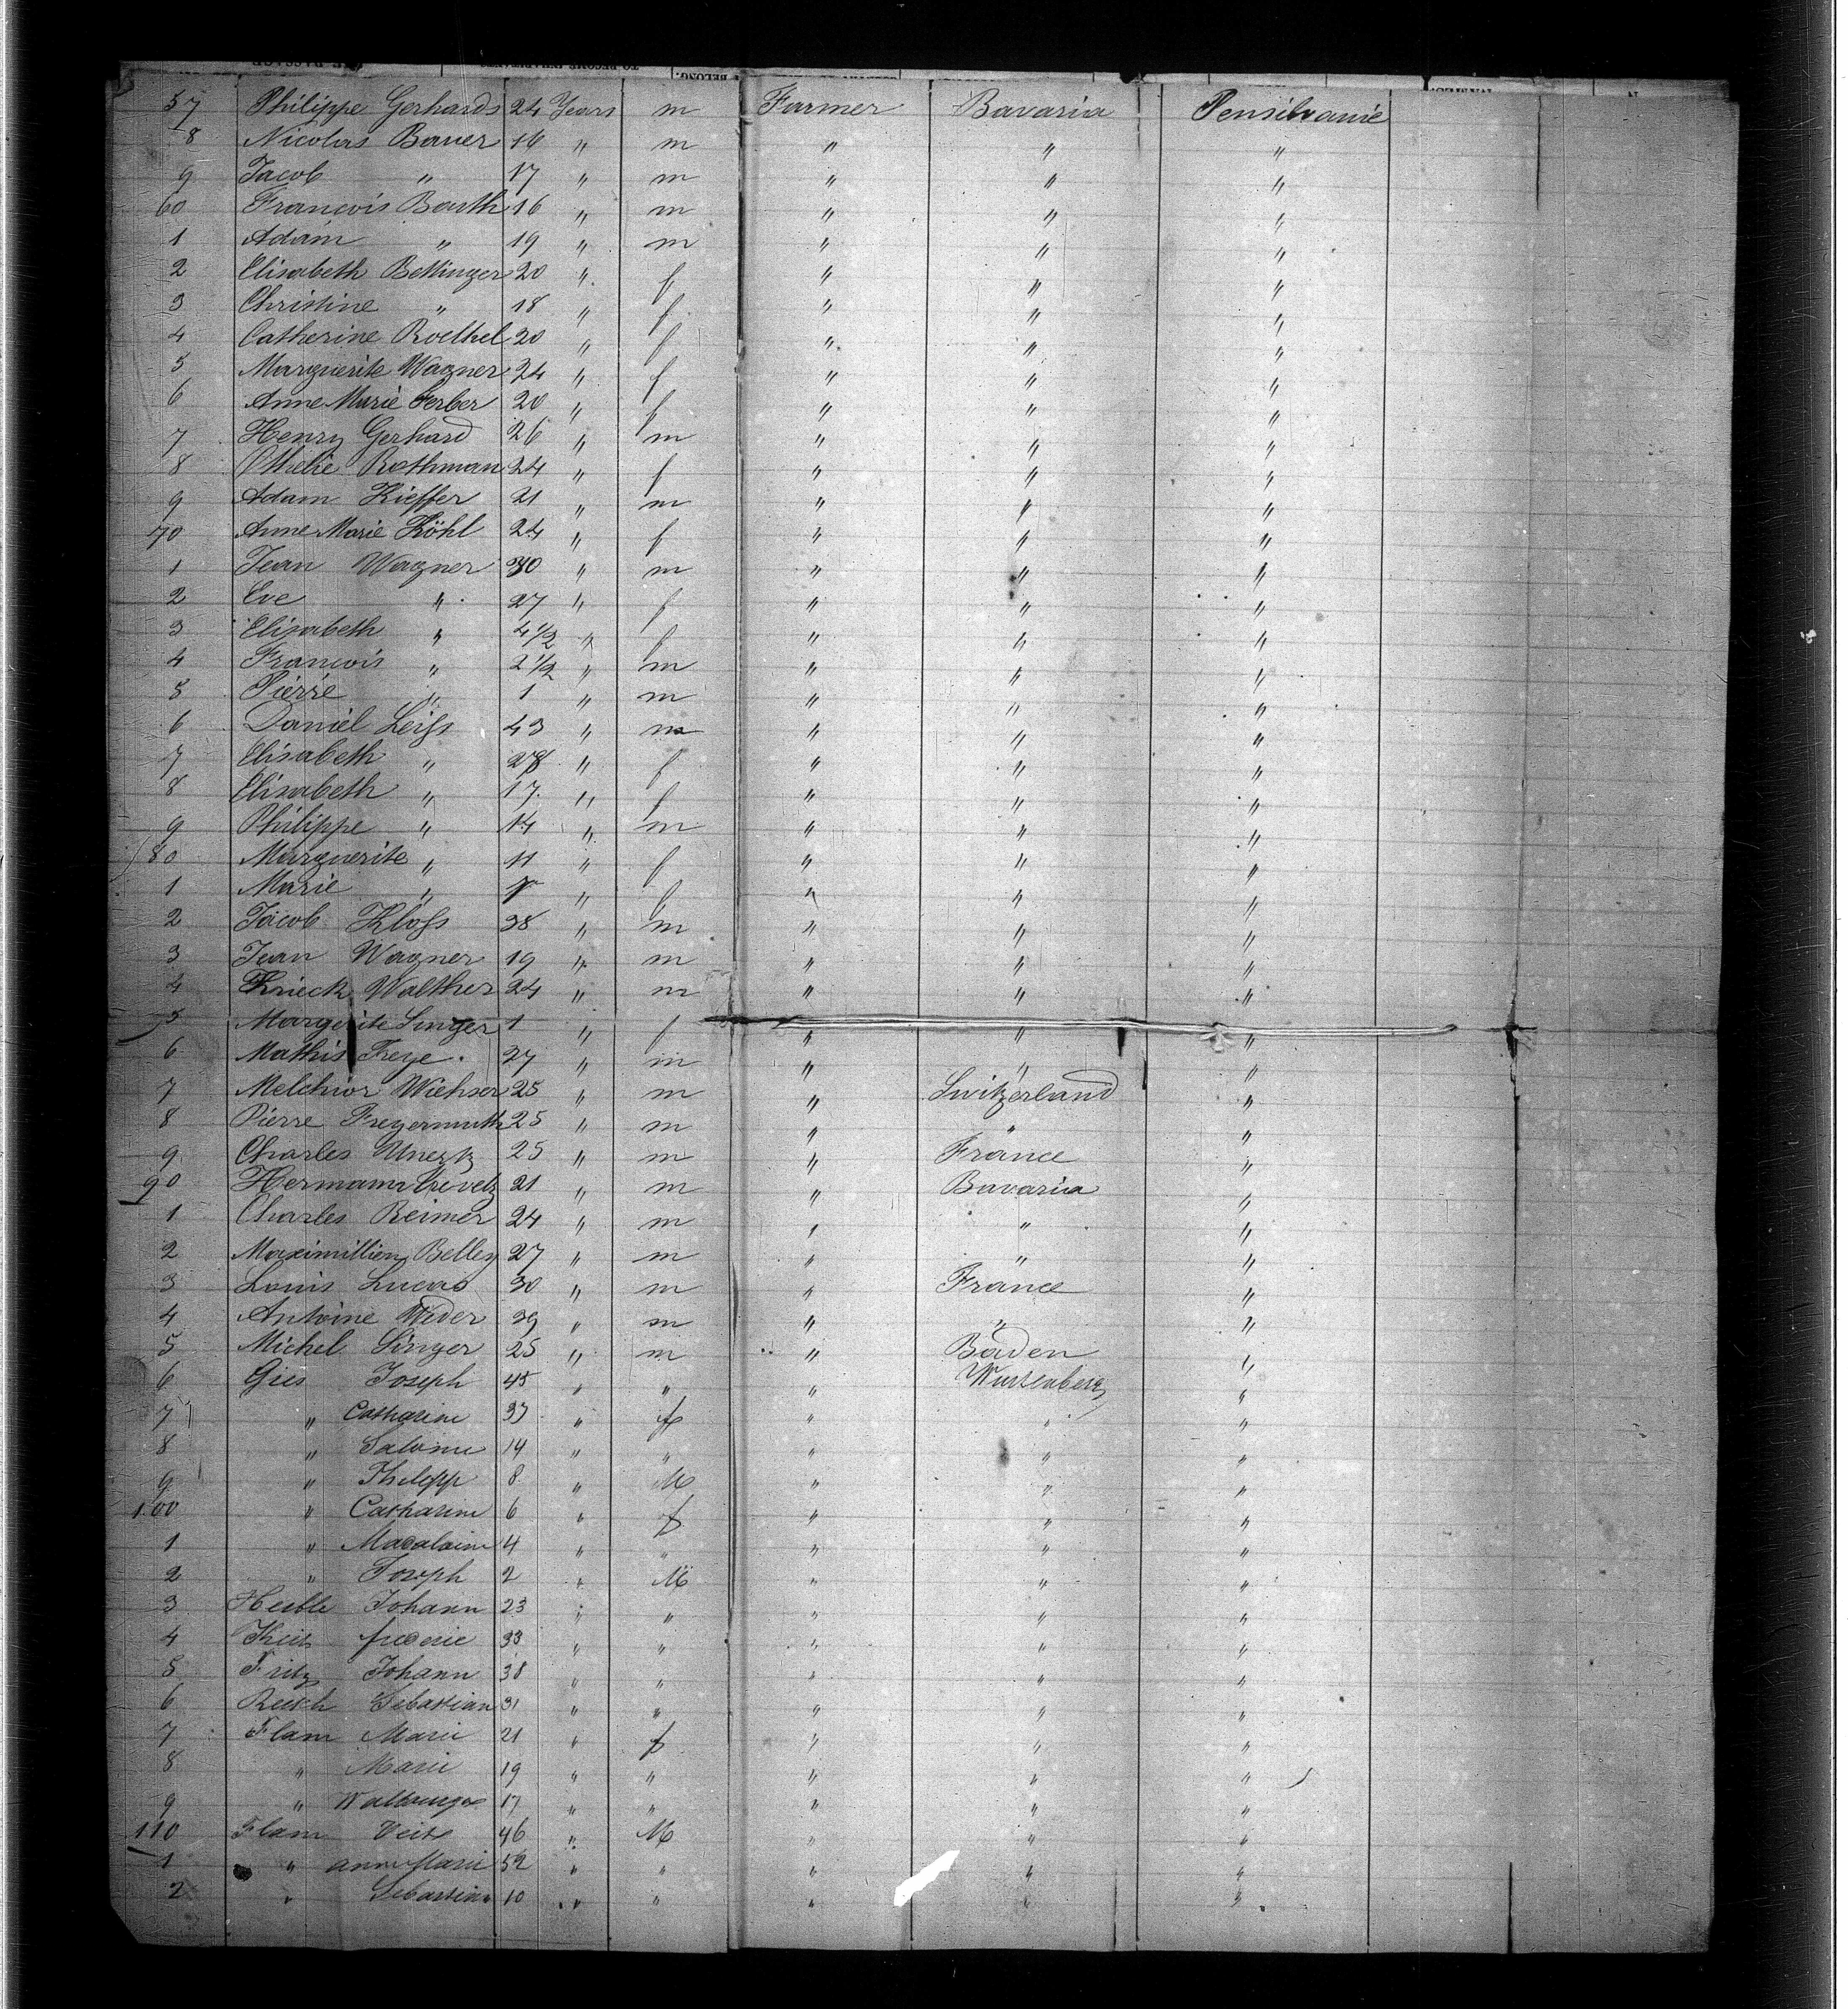 57 Philippe Gerhards 24 Years m Farmer Bavaria Pensilvanie
8 Nicolas Bauer 16 " m " " "
9 Jacob " 17 " m " " "
60 Francois Barth 16 " m " " "
1 Adam " 19 " m " " "
2 Elisabeth Bettinger 20 " f " " "
3 Christine " 18 " f " " "
4 Catherine Roethel 20 " f " " "
5 Marguerite Wagner 24 " f " " "
6 Anne Marie Ferber 20 " f " " "
7 Henry Gerhard 26 " m " " "
8 Ottilie Rothman 24 " f " " "
9 Adam Kieffer 21 " m " " "
70 Anne Marie Köhl 24 " f " " "
1 Jean Wagner 30 " m " " "
2 Eve " 27 " f " " "
3 Elisabeth " 4 1/2 " f " " "
4 Francois " 2 1/2 " m " " "
5 Pierre " 1 " m " " "
6 Daniel Leiss 43 " m " " "
7 Elisabeth " 28 " f " " "
8 Elisabeth " 17 " f " " "
9 Philippe " 14 " m " " "
80 Marguerite " 11 " f " " "
1 Marie " 7 " f " " "
2 Jacob Kloss 38 " m " " "
3 Jean Wagner 19 " m " " "
4 Walther 24 " m " " "
5 Margerite Singer 1 " f " " "
6 Mathis Freye 27 " m " " "
7 Melchior Wichser 25 " m " Switzerland "
8 Pierre Freyermuth 25 " m " " "
9 Charles 25 " m " France "
90 Hermann 21 " m " Bavaria "
1 Charles Reimer 24 " m " " "
2 Maximillien Belley 27 " m " " "
3 Louis Lucas 30 " m " France "
4 Antoine Weder 39 " m " " "
5 Michel Singer 25 " m " Baden "
6 Gies Joseph 45 " " " Wurtenberg "
7 " Catharine 37 " f " " "
8 " Salome 14 " " " " "
9 " Philipp 8 " M " " "
100 " Catharine 6 " f " " "
1 " Madalaine 4 " " " " "
2 " Joseph 2 " M " " "
3 Heible Johann 23 " " " " "
4 frederic 33 " " " " "
5 Fritz Johann 38 " " " " "
6 Reich Sebastian 31 " " " " "
7 Flam Marie 21 " f " " "
8 " Marie 19 " " " " "
9 " Walburga 17 " " " " "
110 Flam Veit 46 " M " " "
1 " anna Marie 52 " " " " "
2 " Sebastian 10 " " " " "